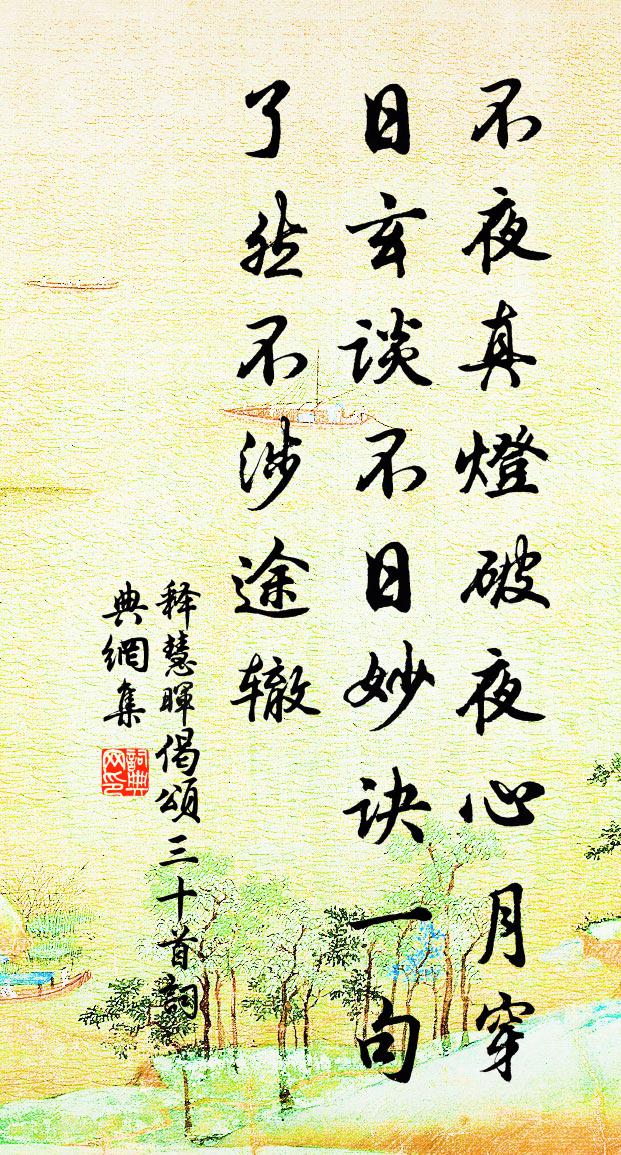 不夜真燈破夜心月穿
日玄談不日妙訣一句
了然不涉途轍
釋慧暉偈頌三十首詞
典網集
詞典網印